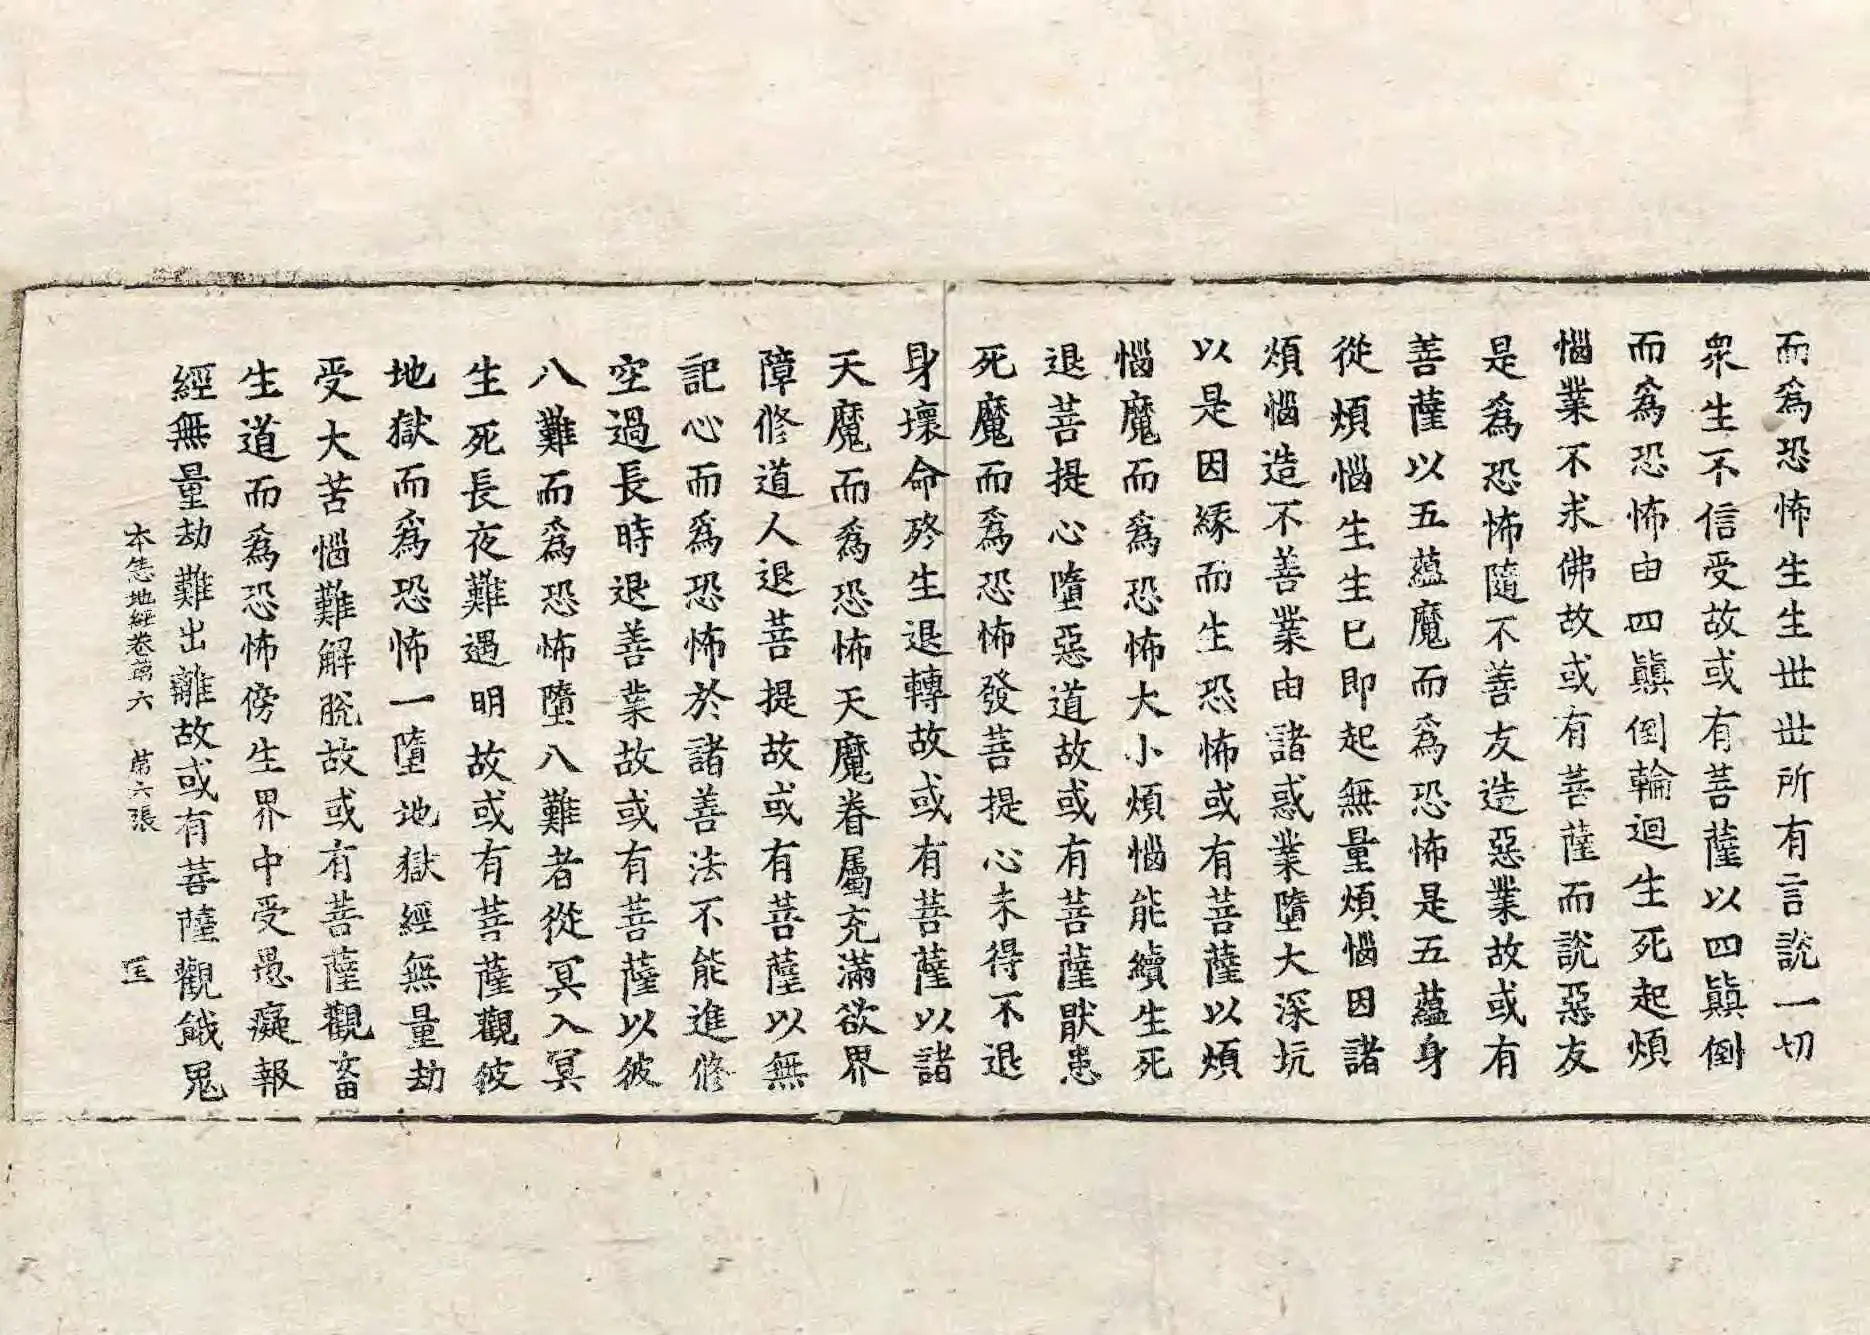 而為恐怖生生世世所有言說一切
衆生不信受故或有菩薩以四顚倒
而為恐怖由四顚倒輪迴生死起煩
惱業不求佛故或有菩薩而說惡友
是為恐怖隨不善友造惡業故或有
善薩以五蘊魔而為恐怖是五蘊身
從煩惱生生已即起無量煩惱因諸
煩惱造不善業由諸惑業墮大深坑
以是因緣而生恐怖或有菩薩以煩
惱魔而為恐怖大小煩惱能續生死
退菩提心墮惡道故或有菩薩猒患
死魔而為恐怖發菩提心未得不退
身壞命終生退轉故或有菩薩以諸
天魔而為恐怖天魔眷屬充滿欲界
障修道人退菩提故或有菩薩以無
記心而為恐怖於諸善法不能進修
空過長時退善業故或有菩薩以彼
八難而為恐怖墮八難者從冥入冥
生死長夜難遇明故或有菩薩觀彼
地獄而為恐怖一墮地獄經無量劫
受大苦惱難解脫故或有菩薩觀畜
生道而為恐怖傍生界中受愚癡報
經無量劫難出離故或有菩薩觀餓鬼
本㤙地經卷苐六 苐六張 匡